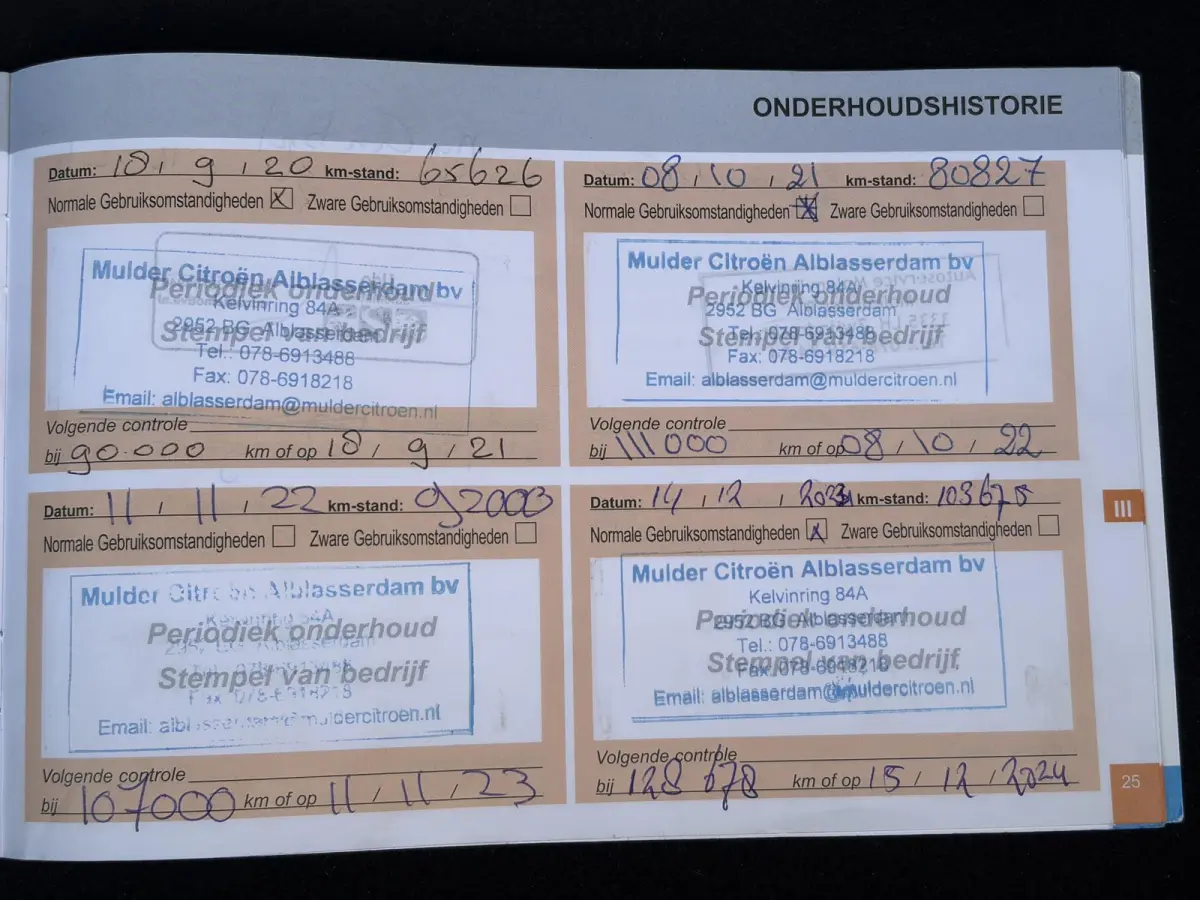 ONDERHOUDSHISTORIE
Datum: 18 / 9 / 20 km-stand: 65626
Normale Gebruiksomstandigheden X Zware Gebruiksomstandigheden
Mulder Citroën Alblasserdam bv
Periodiek onderhoud
Kelvinring 84A
2952 BG Alblasserdam
Stempel van bedrijf
Tel.: 078-6913488
Fax: 078-6918218
Email: alblasserdam@muldercitroen.nl
Volgende controle
bij 90.000 km of op 18 / 9 / 21
Datum: 08 / 10 / 21 km-stand: 80827
Normale Gebruiksomstandigheden X Zware Gebruiksomstandigheden
Mulder Citroën Alblasserdam bv
Kelvinring 84A
Periodiek onderhoud
2952 BG Alblasserdam
Tel.: 078-6913488
Stempel van bedrijf
Fax: 078-6918218
Email: alblasserdam@muldercitroen.nl
Volgende controle
bij 111000 km of op 08 / 10 / 22
Datum: 11 / 11 / 22 km-stand: 92003
Normale Gebruiksomstandigheden Zware Gebruiksomstandigheden
Mulder Citroën Alblasserdam bv
Kelvinring 84A
Periodiek onderhoud
Stempel van bedrijf
Email: alblasserdam@muldercitroen.nl
Volgende controle
bij 107000 km of op 11 / 11 / 23
Datum: 14 / 12 / km-stand: 103678
Normale Gebruiksomstandigheden X Zware Gebruiksomstandigheden
Mulder Citroën Alblasserdam bv
Kelvinring 84A
Periodiek onderhoud
2952 BG Alblasserdam
Tel.: 078-6913488
Stempel van bedrijf
Fax: 078-6918218
Email: alblasserdam@muldercitroen.nl
Volgende controle
bij 128678 km of op 15 / 12 / 2024
III
25